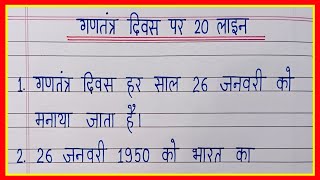 गणतंत्र दिवस पर 20 लाइन
1. गणतंत्र दिवस हर साल 26 जनवरी को
मनाया जाता है।
2. 26 जनवरी 1950 को भारत का